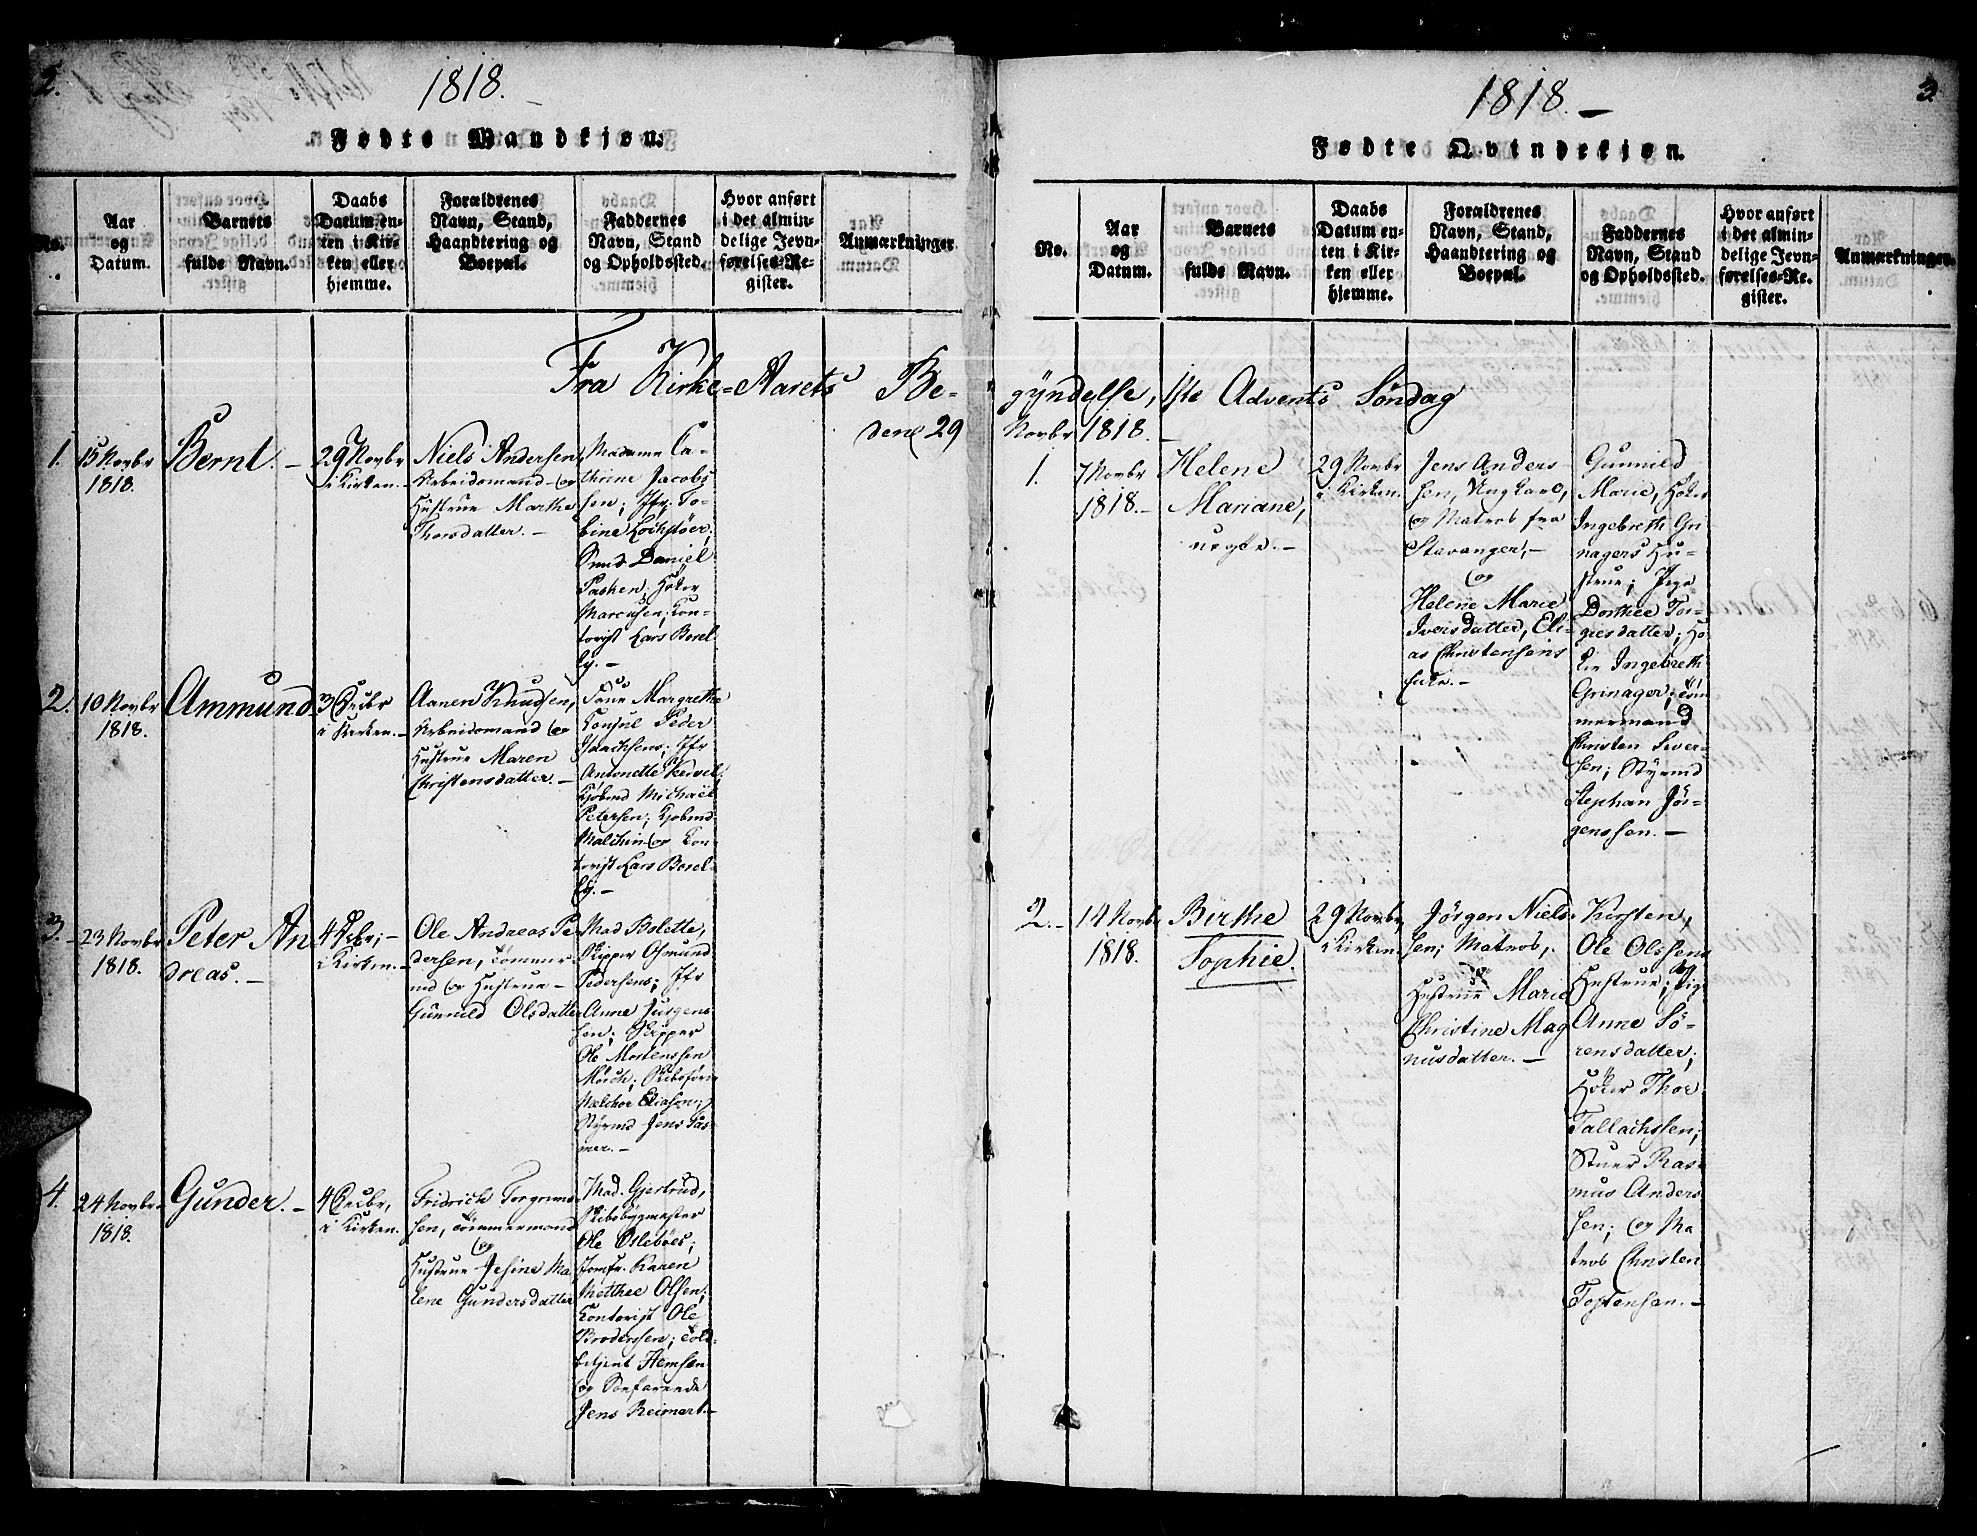 2.
1818.
Fødte Mandkjøn.
No.
Aar
og
Datum.
Barnets
fulde Navn.
Daabs
Datum en-
ten i Kir-
ken eller
hjemme.
Forældrenes
Navn, Stand,
Haandtering og
Boepæl.
Faddernes
Navn, Stand
og Opholdssted.
Hvor anført
i det almin-
delige Jevn-
førelses-Re-
gister.
Anmærkninger
Fra Kirke-Aarets Be-
den 29
1.
15 Novbr
1818.
Bernt. –
29 Novbr
i Kirken. –
Niels Andersen
Arbeidsmand og
Hustrue Marthe
Thorsdatter. –
Madame Ca-
thrine Jacobs
sen; Jfr. To-
bine Lochstöer;
Daniel
Höker
Marcusen; Con-
torist Lars Borel-
ly. –
2.
10 Novbr
1818.
Ammund
3 Decbr
i Kirken. –
Aanen Knudsen,
Arbeidsmand og
Hustrue Maren
Christensdatter. –
Margrethe
Consul Peder
Isaachsens; Jfr
Antonette
Kjöbmd Michaël
Petersen; Kjöbmd
Malchin og Con-
torist Lars Borel-
ly. –
3.
23 Novbr
1818.
Peter An
dreas. –
4 Debr; –
i Kirken. –
Ole Andreas Pe
dersen, Tömmer
md og Hustrue –
Gunnild Olsdatter
Mad Bolette,
Skipper Osmund
Pedersens; Jfr
Anne Jürgens
sen; Skipper
Ole Mortenssen
Mörch; Skibsförer
Melchor Eliasen;
Styrmd Jens Tas
mer. –
4.
24 Novbr
1818.
Gunder. –
4 Decbr,
i Kirken.
Fridrich Torgrims
sen, Tömmermand
og
Hustrue Jesine Ma
lene Gundersdatter
Mad. Gjertrud,
Skibsbygmester
Ole Osleböes;
Jomfr. Karen
Metthee Olsen;
Contorist Ole
Brodersen; Told-
betjent Hemsen
og Söefarende
Jens Reimert. –
3.
1818. –
Fødte Qvindekjøn.
No.
Aar
og
Datum.
Barnets
fulde Navn.
Daabs
Datum en-
ten i Kir-
ken eller
hjemme.
Forældrenes
Navn, Stand,
Haandtering og
Boepæl.
Faddernes
Navn, Stand
og Opholdssted.
Hvor anført
i det almin-
delige Jevn-
førelses-Re-
gister.
Anmærkninger.
gyndelse, 1ste Advents Søndag
Novbr 1818. –
1.
7 Novbr
1818. –
Helene
Mariane,
uegte. –
29 Novbr
i Kirken.
Jens Anders
sen, Ungkarl,
og Matros fra
Stavanger, –
og
Helene Marie
Iversdatter, Eli-
as Christensens
Enke. –
Gunnild
Marie, Höker
Ingebreth Gri
nagers Hu-
strue; Pige
Dorthee Tor-
giesdatter; Hö-
ker Ingebreth
Grinager; Töm
mermand
Christen Siver-
sen; Styrmd
Stephan Jör-
genssen. –
2. –
14 Novbr
1818.
Birthe
Sophie.
29 Novbr,
i Kirken.
Jörgen Niels
sen; Matros,
og
Hustrue Marie
Christine Mag
nusdatter. –
Kirsten,
Ole Olssens
Hustrue; Pige
Anne Sö-
rensdatter;
Höker Thor
Tallachssen;
Stuer Ras-
mus Anders
sen; og Ma
tros Christen
Tostensen. –